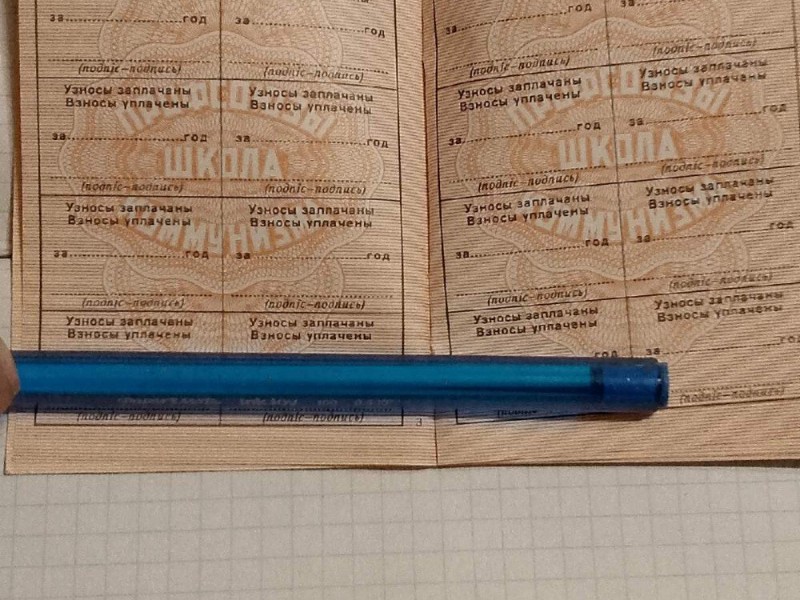 за год за год
(подпіс—подпись) (подпіс—подпись)
Узносы заплачаны Узносы заплачаны
Взносы уплачены Взносы уплачены
за год за год
(подпіс—подпись) (подпіс—подпись)
Узносы заплачаны Узносы заплачаны
Взносы уплачены Взносы уплачены
за год за год
(подпіс—подпись) (подпіс—подпись)
Узносы заплачаны Узносы заплачаны
Взносы уплачены Взносы уплачены
(подпіс—подпись) (подпіс—подпись)
3
ПРОФСОЮЗЫ
ШКОЛА
КОММУНИЗМА
за год за
(подпіс—подпись) (подпіс—подпись)
Узносы заплачаны Узносы заплачаны
Взносы уплачены Взносы уплачены
за год за год
(подпіс—подпись) (подпіс—подпись)
Узносы заплачаны Узносы заплачаны
Взносы уплачены Взносы уплачены
за год за год
(подпіс—подпись) (подпіс—подпись)
Узносы заплачаны Узносы заплачаны
Взносы уплачены Взносы уплачены
год за год
(подпіс—подпись)
ПРОФСОЮЗЫ
ШКОЛА
КОММУНИЗМА